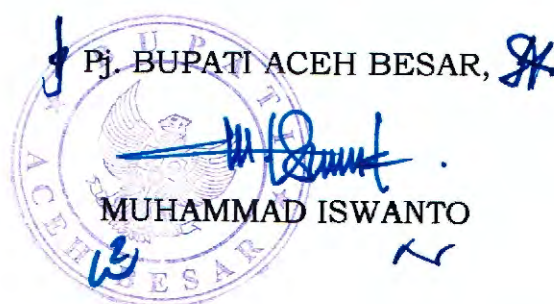 Pj. BUPATI ACEH BESAR,
MUHAMMAD ISWANTO
BUPATI
ACEH BESAR